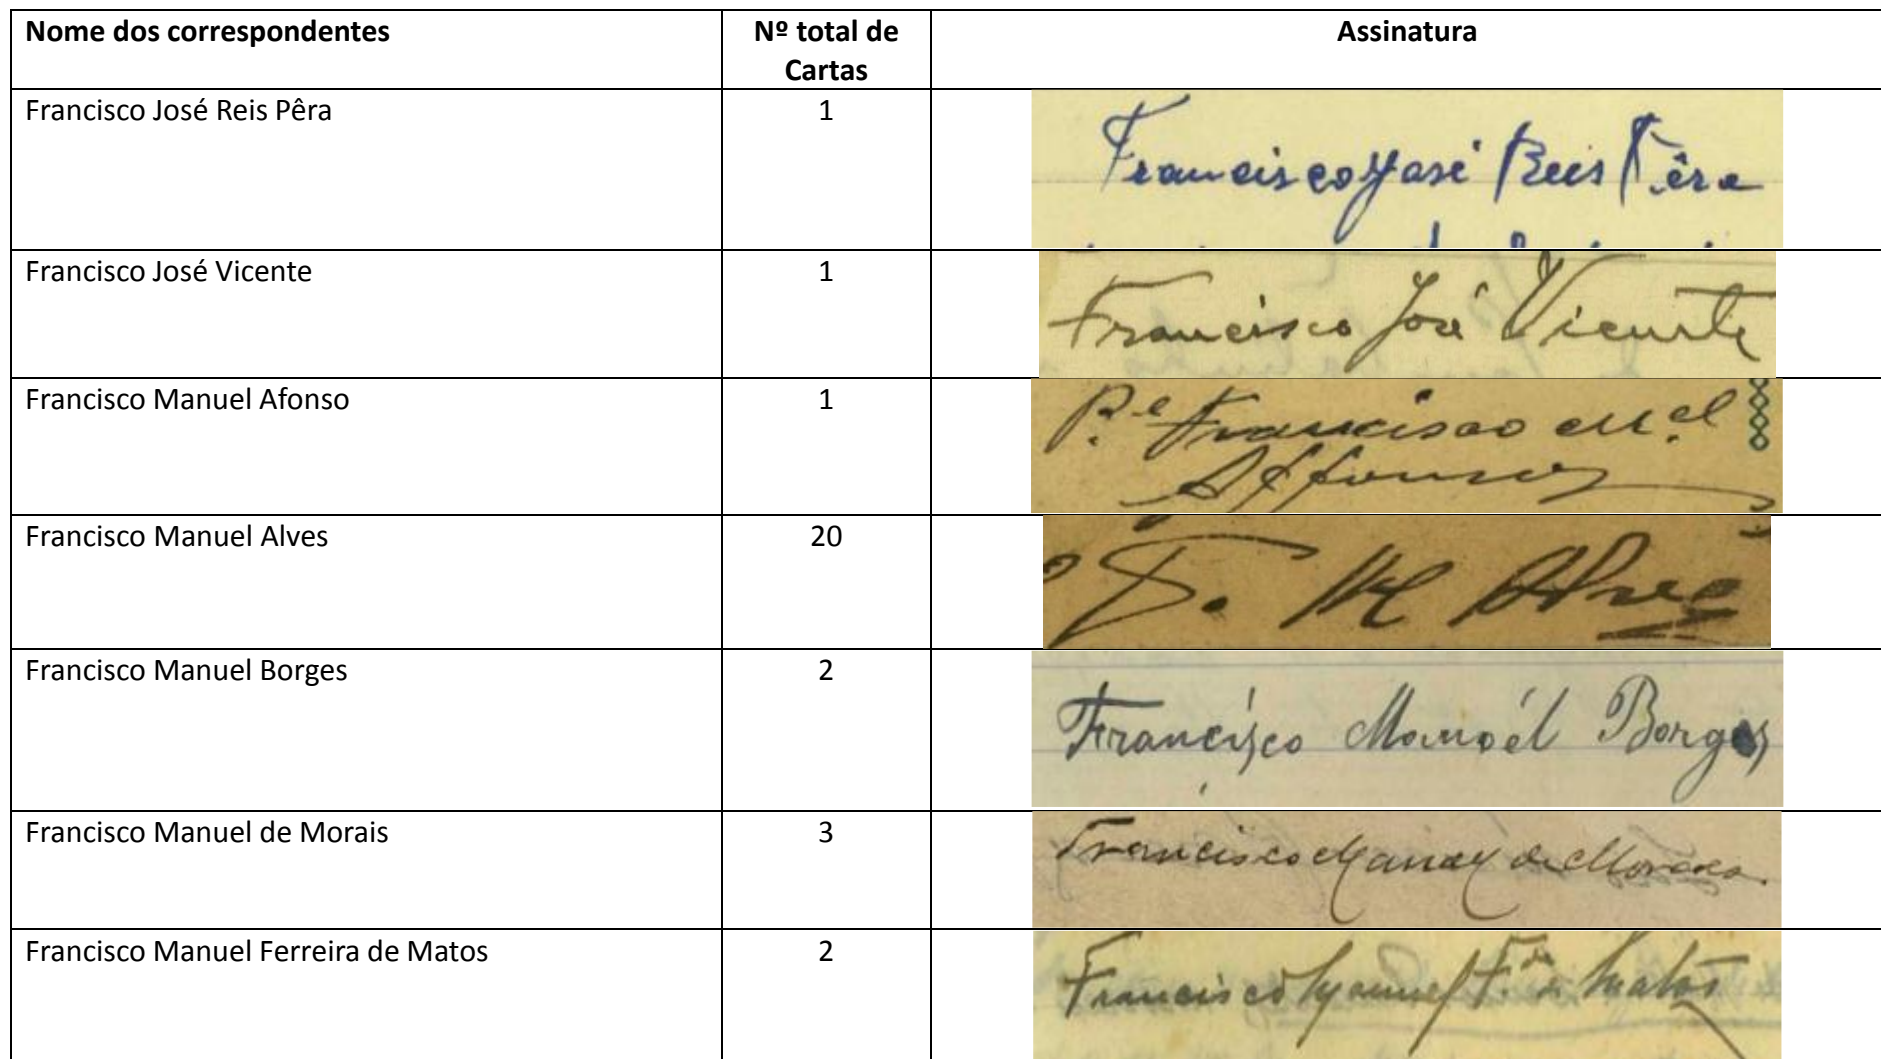 Nome dos correspondentes
Nº total de
Cartas
Assinatura
Francisco José Reis Pêra
1
Francisco José Reis Pêra
Francisco José Vicente
1
Francisco José Vicente
Francisco Manuel Afonso
1
P.e Francisco M.el
Affonso
Francisco Manuel Alves
20
F. M Alves
Francisco Manuel Borges
2
Francisco Manoél Borges
Francisco Manuel de Morais
3
Francisco Manoel de Moraes
Francisco Manuel Ferreira de Matos
2
Francisco Manuel F.ra de Matos